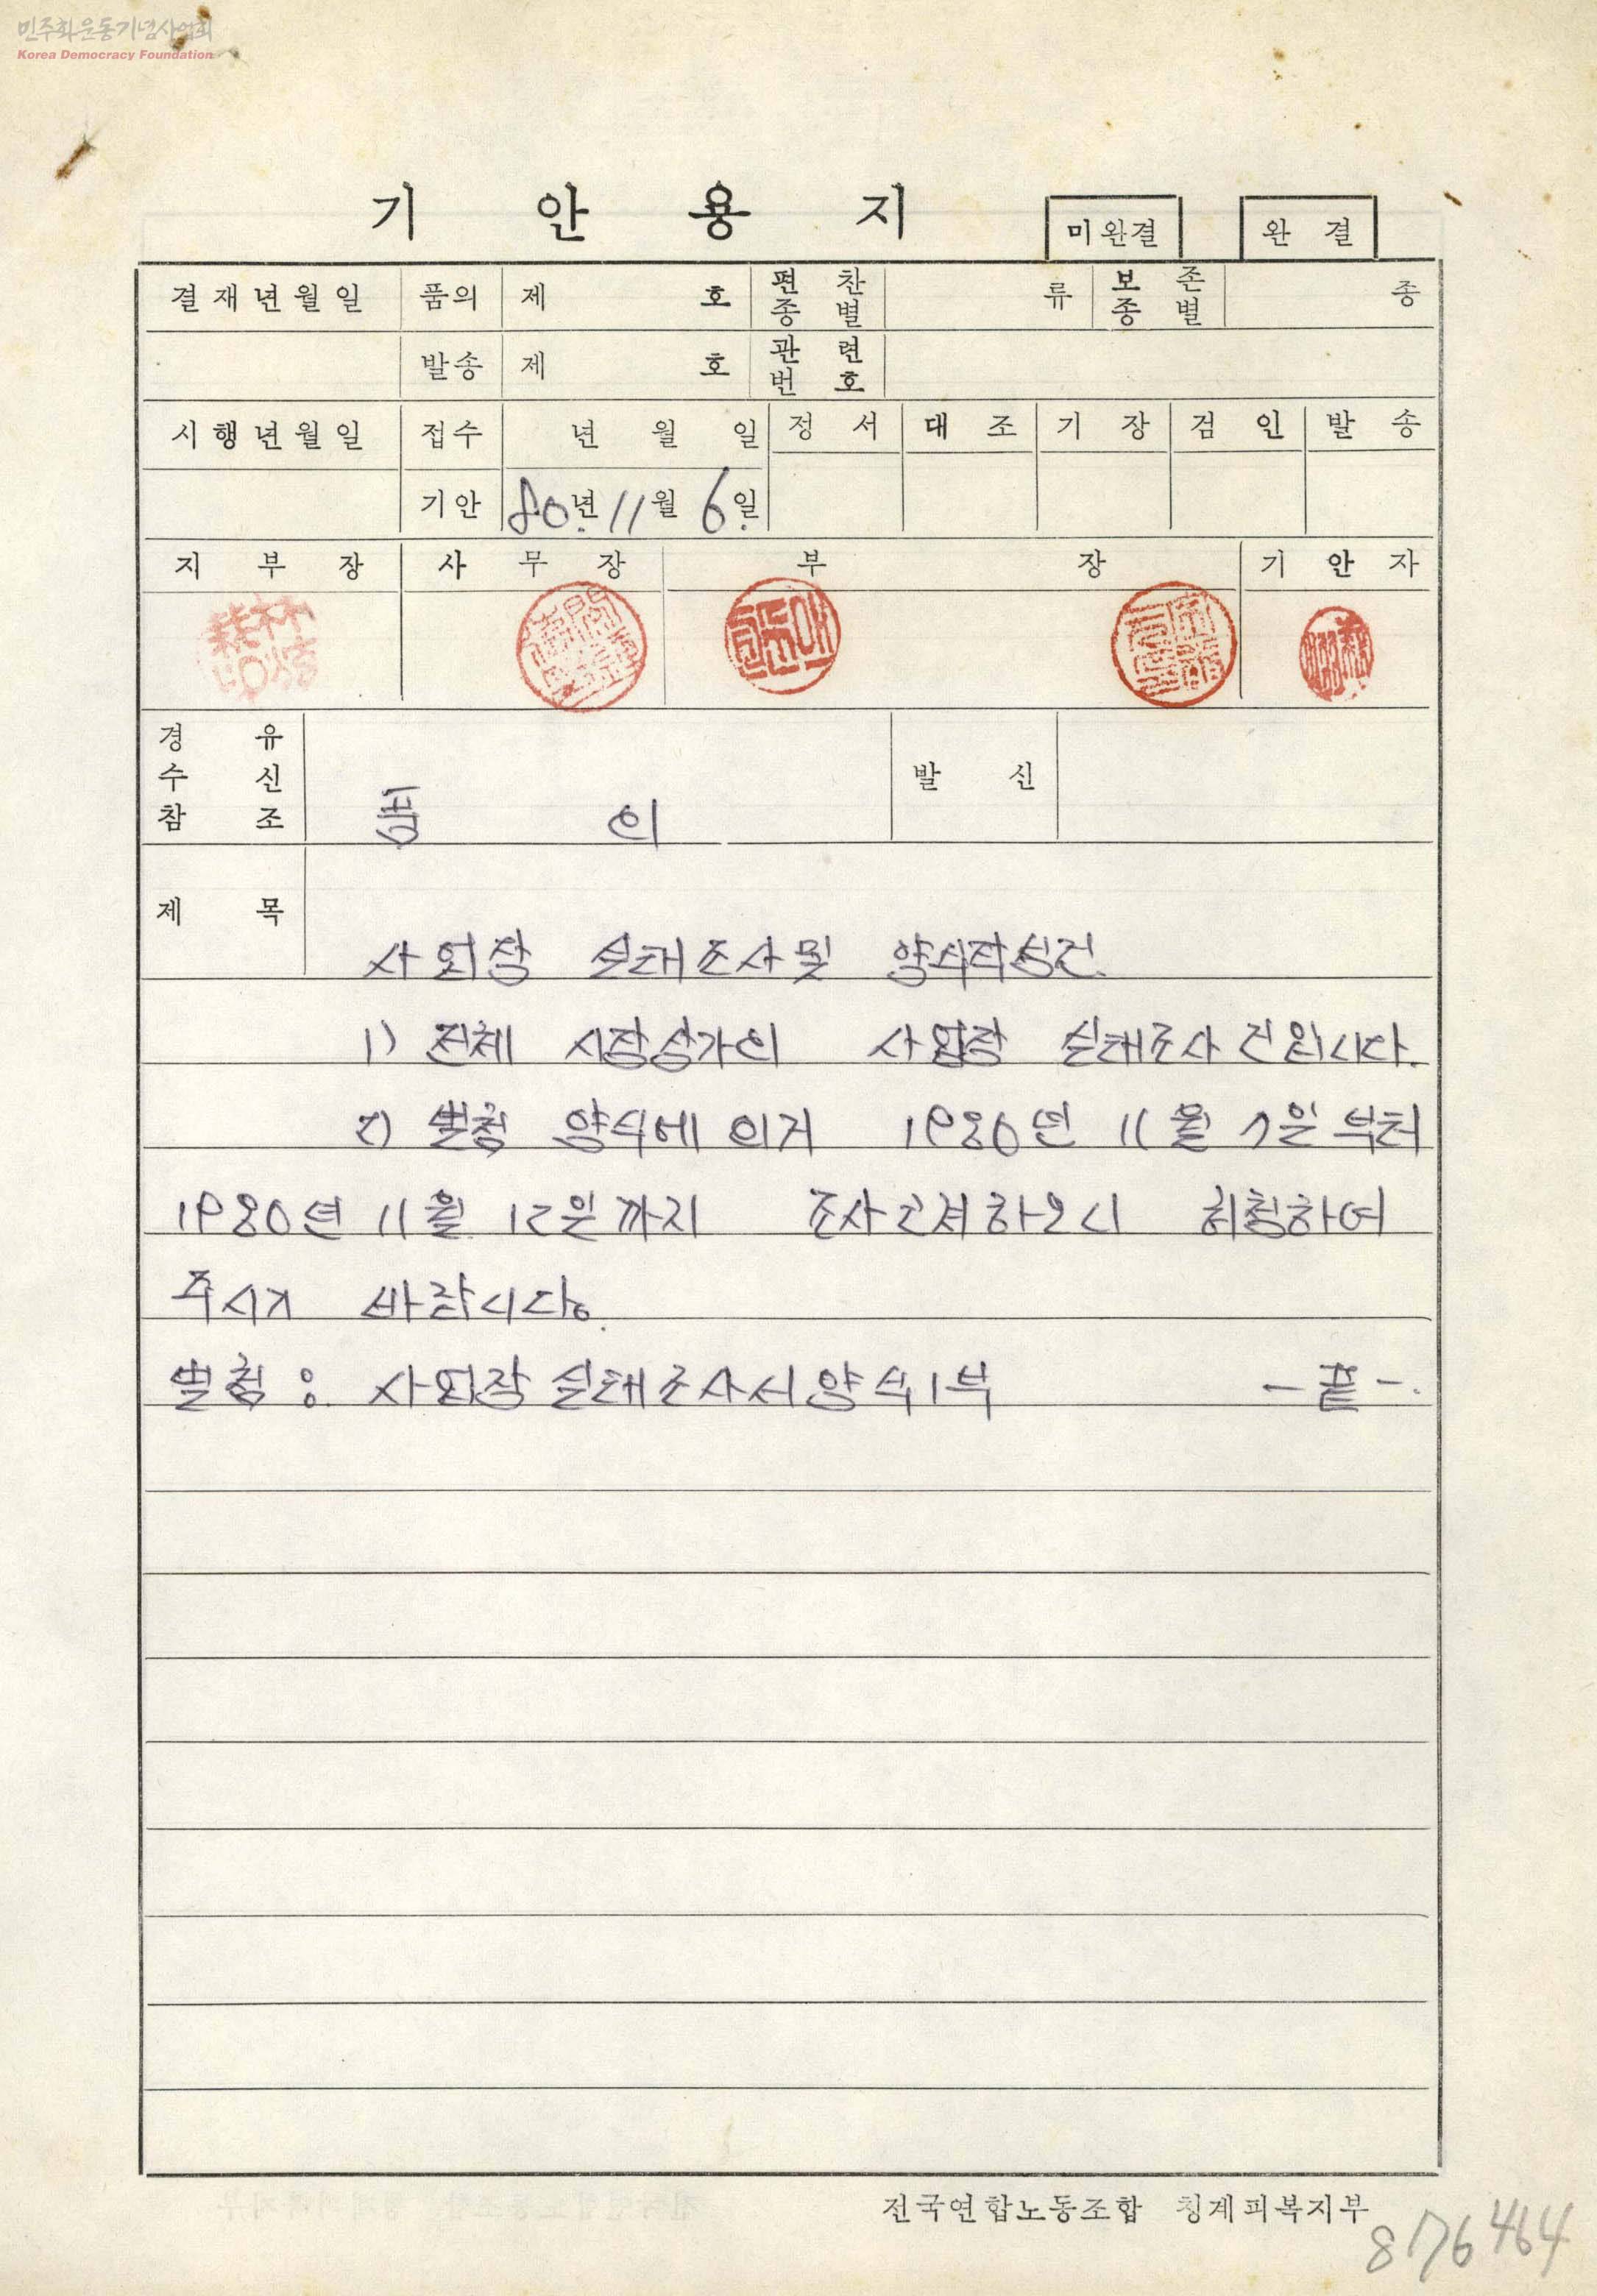 민주화운동기념사업회
Korea Democracy Foundation
기 안 용 지
미완결 완 결
결재년월일 품의 제 호 편찬종별 류 보존종별 종
발송 제 호 관련번호
시행년월일 접수 년 월 일 정서 대조 기장 검인 발송
기안 80년 11월 6일
지부장 사무장 부장 기안자
경유
수신
참조 품 의
발신
제목 사업장 실태조사및 양식작성건.
1) 전체 시장상가의 사업장 실태조사 건입니다.
2) 별첨 양식에 의거 1980년 11월 7일 부터
1980년 11월 12일까지 조사코져하오니 허첨하여
주시기 바랍니다.
별첨: 사업장 실태조사서양식1부 -끝-.
전국연합노동조합 청계피복지부
876464